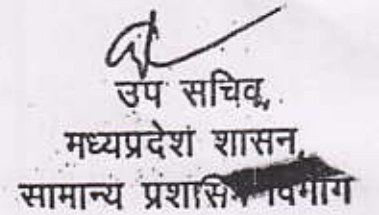 उप सचिव,
मध्यप्रदेश शासन,
सामान्य प्रशासन विभाग